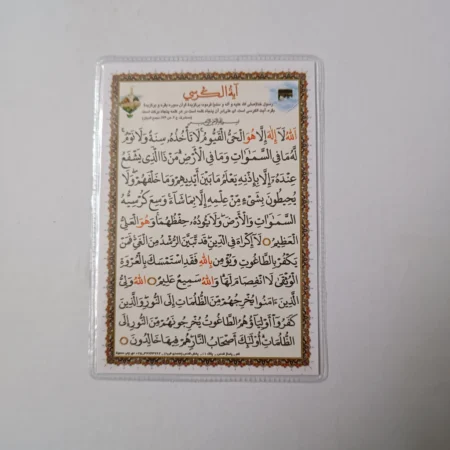 آیة الکرسی
اللهُ لَا إِلَهَ إِلَّا هُوَ الْحَيُّ الْقَيُّومُ لَا تَأْخُذُهُ سِنَةٌ وَلَا نَوْمٌ
لَهُ مَا فِي السَّمَاوَاتِ وَمَا فِي الْأَرْضِ مَنْ ذَا الَّذِي يَشْفَعُ
عِنْدَهُ إِلَّا بِإِذْنِهِ يَعْلَمُ مَا بَيْنَ أَيْدِيهِمْ وَمَا خَلْفَهُمْ وَلَا
يُحِيطُونَ بِشَيْءٍ مِنْ عِلْمِهِ إِلَّا بِمَا شَاءَ وَسِعَ كُرْسِيُّهُ
السَّمَاوَاتِ وَالْأَرْضَ وَلَا يَؤُدُهُ حِفْظُهُمَا وَهُوَ الْعَلِيُّ
الْعَظِيمُ لَا إِكْرَاهَ فِي الدِّينِ قَدْ تَبَيَّنَ الرُّشْدُ مِنَ الْغَيِّ فَمَنْ
يَكْفُرْ بِالطَّاغُوتِ وَيُؤْمِنْ بِاللهِ فَقَدِ اسْتَمْسَكَ بِالْعُرْوَةِ
الْوُثْقَى لَا انْفِصَامَ لَهَا وَاللهُ سَمِيعٌ عَلِيمٌ اللهُ وَلِيُّ
الَّذِينَ آمَنُوا يُخْرِجُهُمْ مِنَ الظُّلُمَاتِ إِلَى النُّورِ وَالَّذِينَ
كَفَرُوا أَوْلِيَاؤُهُمُ الطَّاغُوتُ يُخْرِجُونَهُمْ مِنَ النُّورِ إِلَى
الظُّلُمَاتِ أُولَئِكَ أَصْحَابُ النَّارِ هُمْ فِيهَا خَالِدُونَ